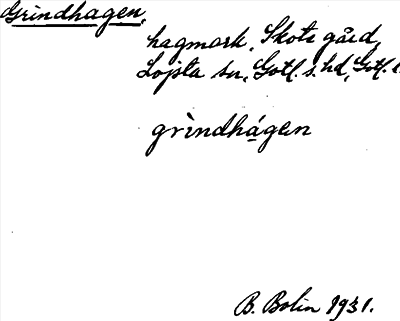 Grindhagen,
hagmark, Skots gård,
Lojsta sn, Gotl. s. hd, Gotl. l.
grìndhá̱gen
B. Bolin 1931.